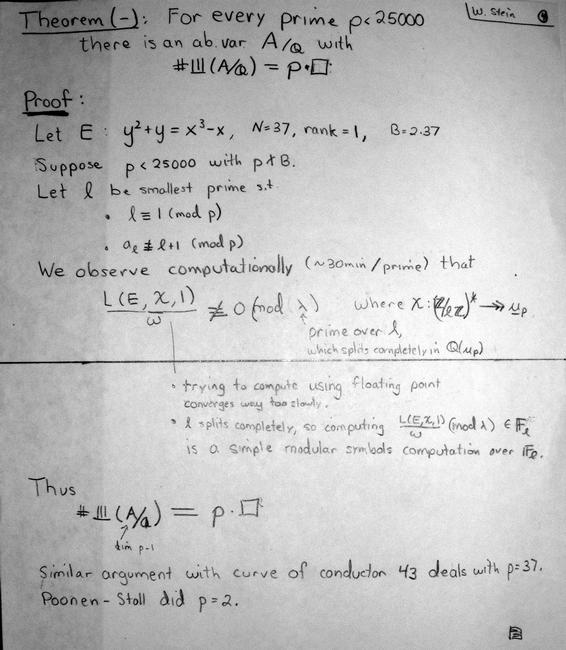 W. Stein
Theorem (-): For every prime p<25000
there is an ab. var A/Q with
#Ш(A/Q) = p·□.
Proof:
Let E: y²+y = x³-x, N=37, rank=1, B=2·37
Suppose p<25000 with p∤B.
Let ℓ be smallest prime s.t.
• ℓ ≡ 1 (mod p)
• a_ℓ ≢ ℓ+1 (mod p)
We observe computationally (~30min/prime) that
L(E,χ,1)/ω ≢ 0 (mod λ) where χ: (Z/ℓZ)* ↠ μ_p
prime over ℓ,
which splits completely in Q(μ_p)
• trying to compute using floating point
converges way too slowly.
• ℓ splits completely, so computing L(E,χ,1)/ω (mod λ) ∈ F_ℓ
is a simple modular symbols computation over F_ℓ.
Thus
#Ш(A/Q) = p·□
dim p-1
Similar argument with curve of conductor 43 deals with p=37.
Poonen-Stoll did p=2.